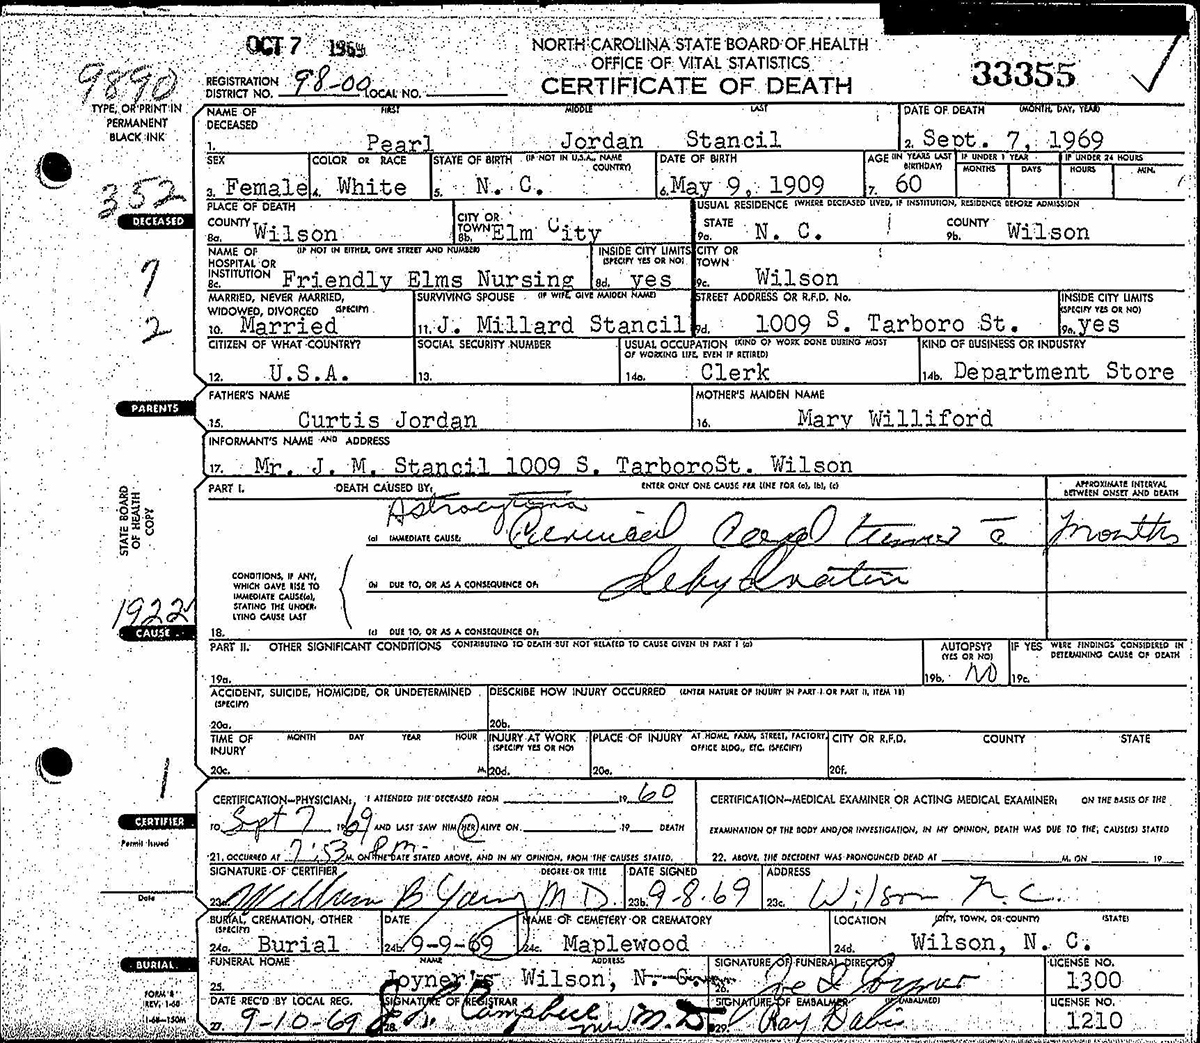 OCT 7 1969
NORTH CAROLINA STATE BOARD OF HEALTH
OFFICE OF VITAL STATISTICS
CERTIFICATE OF DEATH
33355
9890
REGISTRATION DISTRICT NO. 98-00 LOCAL NO.
TYPE, OR PRINT IN
PERMANENT
BLACK INK
NAME OF DECEASED FIRST MIDDLE LAST
1. Pearl Jordan Stancil
DATE OF DEATH (MONTH, DAY, YEAR)
2. Sept. 7, 1969
352
SEX
3. Female
COLOR OR RACE
4. White
STATE OF BIRTH (IF NOT IN U.S.A., NAME COUNTRY)
5. N. C.
DATE OF BIRTH
6. May 9, 1909
AGE (IN YEARS LAST BIRTHDAY)
7. 60
IF UNDER 1 YEAR
MONTHS DAYS
IF UNDER 24 HOURS
HOURS MIN.
DECEASED
PLACE OF DEATH
COUNTY
8a. Wilson
CITY OR TOWN
8b. Elm City
USUAL RESIDENCE (WHERE DECEASED LIVED, IF INSTITUTION, RESIDENCE BEFORE ADMISSION
STATE
9a. N. C.
COUNTY
9b. Wilson
7
NAME OF HOSPITAL OR INSTITUTION (IF NOT IN EITHER, GIVE STREET AND NUMBER)
8c. Friendly Elms Nursing
INSIDE CITY LIMITS (SPECIFY YES OR NO)
8d. yes
CITY OR TOWN
9c. Wilson
2
MARRIED, NEVER MARRIED, WIDOWED, DIVORCED (SPECIFY)
10. Married
SURVIVING SPOUSE (IF WIFE, GIVE MAIDEN NAME)
11. J. Millard Stancil
STREET ADDRESS OR R.F.D. No.
9d. 1009 S. Tarboro St.
INSIDE CITY LIMITS (SPECIFY YES OR NO)
9e. yes
CITIZEN OF WHAT COUNTRY?
12. U.S.A.
SOCIAL SECURITY NUMBER
13.
USUAL OCCUPATION (KIND OF WORK DONE DURING MOST OF WORKING LIFE, EVEN IF RETIRED)
14a. Clerk
KIND OF BUSINESS OR INDUSTRY
14b. Department Store
PARENTS
FATHER'S NAME
15. Curtis Jordan
MOTHER'S MAIDEN NAME
16. Mary Williford
INFORMANT'S NAME AND ADDRESS
17. Mr. J. M. Stancil 1009 S. TarboroSt. Wilson
STATE BOARD
OF HEALTH
COPY
PART I. DEATH CAUSED BY: ENTER ONLY ONE CAUSE PER LINE FOR (a), (b), (c)
APPROXIMATE INTERVAL BETWEEN ONSET AND DEATH
Astrocytoma
(a) IMMEDIATE CAUSE: Cervical Cord tumor c̄ months
CONDITIONS, IF ANY,
WHICH GAVE RISE TO
IMMEDIATE CAUSE(a),
STATING THE UNDER-
LYING CAUSE LAST
(b) DUE TO, OR AS A CONSEQUENCE OF: dehydration
1922
CAUSE
18. (c) DUE TO, OR AS A CONSEQUENCE OF:
PART II. OTHER SIGNIFICANT CONDITIONS CONTRIBUTING TO DEATH BUT NOT RELATED TO CAUSE GIVEN IN PART I (a)
19a.
AUTOPSY? (YES OR NO)
19b. NO
IF YES WERE FINDINGS CONSIDERED IN DETERMINING CAUSE OF DEATH
19c.
ACCIDENT, SUICIDE, HOMICIDE, OR UNDETERMINED (SPECIFY)
20a.
DESCRIBE HOW INJURY OCCURRED (ENTER NATURE OF INJURY IN PART I OR PART II, ITEM 18)
20b.
TIME OF INJURY MONTH DAY YEAR HOUR
20c. M.
INJURY AT WORK (SPECIFY YES OR NO)
20d.
PLACE OF INJURY AT HOME, FARM, STREET, FACTORY, OFFICE BLDG., ETC. (SPECIFY)
20e.
CITY OR R.F.D. COUNTY STATE
20f.
1
CERTIFIER
Permit Issued
Date
CERTIFICATION—PHYSICIAN: I ATTENDED THE DECEASED FROM 19 60
TO Sept 7 1969 AND LAST SAW HIM/HER ALIVE ON 19 DEATH
21. OCCURRED AT 7:53 pm. M. ON THE DATE STATED ABOVE, AND IN MY OPINION, FROM THE CAUSES STATED.
CERTIFICATION—MEDICAL EXAMINER OR ACTING MEDICAL EXAMINER: ON THE BASIS OF THE
EXAMINATION OF THE BODY AND/OR INVESTIGATION, IN MY OPINION, DEATH WAS DUE TO THE CAUSE(S) STATED
22. ABOVE. THE DECEDENT WAS PRONOUNCED DEAD AT M. ON 19
SIGNATURE OF CERTIFIER DEGREE OR TITLE
23a. William B Young M D
DATE SIGNED
23b. 9-8-69
ADDRESS
23c. Wilson N.C.
BURIAL, CREMATION, OTHER (SPECIFY)
24a. Burial
DATE
24b. 9-9-69
NAME OF CEMETERY OR CREMATORY
24c. Maplewood
LOCATION (CITY, TOWN, OR COUNTY) (STATE)
24d. Wilson, N. C.
BURIAL
FUNERAL HOME NAME ADDRESS
25. Joyner's Wilson, N. C.
SIGNATURE OF FUNERAL DIRECTOR
26. Joe I Joyner
LICENSE NO.
1300
FORM 8
REV. 1-68
1-68-150M
DATE REC'D BY LOCAL REG.
27. 9-10-69
SIGNATURE OF REGISTRAR
28. Campbell M.D.
SIGNATURE OF EMBALMER (IF EMBALMED)
29. Ray
LICENSE NO.
1210